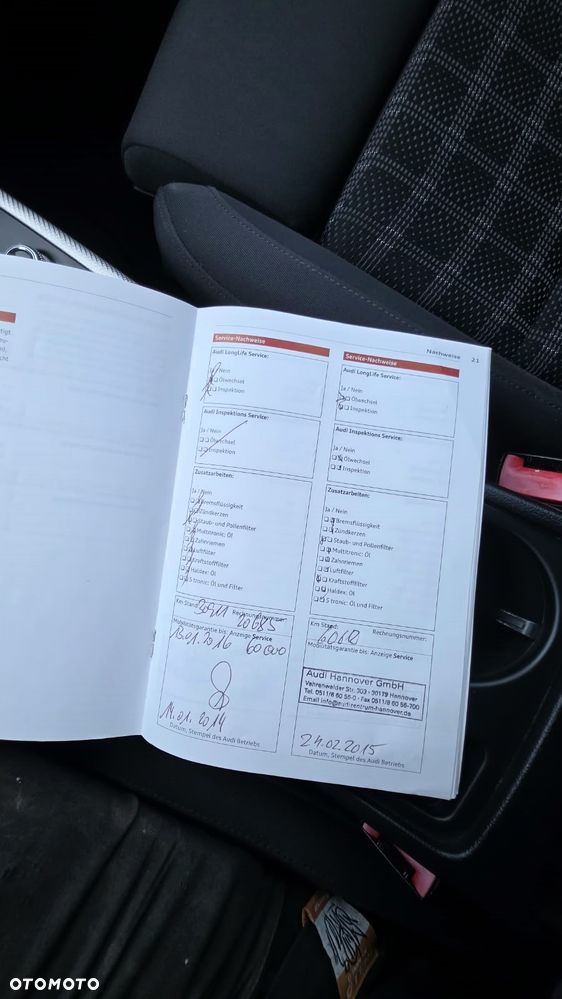 Nachweise 21
Service-Nachweise
Audi LongLife Service:
Ja / Nein
Ölwechsel
Inspektion
Audi Inspektions Service:
Ja / Nein
Ölwechsel
Inspektion
Zusatzarbeiten:
Ja / Nein
Bremsflüssigkeit
Zündkerzen
Staub- und Pollenfilter
Multitronic: Öl
Zahnriemen
Luftfilter
Kraftstofffilter
Haldex: Öl
S tronic: Öl und Filter
Km Stand: Rechnungsnummer:
Mobilitätsgarantie bis: Anzeige Service
13.01.2016 60000
14.01.2014
Datum, Stempel des Audi Betriebs
Service-Nachweise
Audi LongLife Service:
Ja / Nein
Ölwechsel
Inspektion
Audi Inspektions Service:
Ja / Nein
Ölwechsel
Inspektion
Zusatzarbeiten:
Ja / Nein
Bremsflüssigkeit
Zündkerzen
Staub- und Pollenfilter
Multitronic: Öl
Zahnriemen
Luftfilter
Kraftstofffilter
Haldex: Öl
S tronic: Öl und Filter
Km Stand: Rechnungsnummer:
Mobilitätsgarantie bis: Anzeige Service
Audi Hannover GmbH
Vahrenwalder Str. 303 - 30179 Hannover
Tel. 0511/8 60 56-0 - Fax 0511/8 60 56-700
Email info@audizentrum-hannover.de
24.02.2015
Datum, Stempel des Audi Betriebs
OTOMOTO